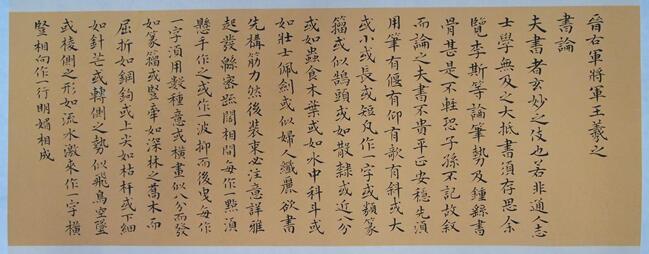 晉右軍將軍王羲之
書論
夫書者玄妙之伎也若非通人志
士學無及之大抵書須存思余
覽李斯等論筆勢及鍾繇書
骨甚是不輕恐子孫不記故敘
而論之夫書不貴平正安穩先須
用筆有偃有仰有欹有斜或大
或小或長或短凡作一字或類篆
籀或似鵠頭或如散隸或近八分
或如蟲食木葉或如水中科斗或
如壯士佩劍或似婦人纖麗欲書
先構筋力然後裝束必注意詳雅
起發緜密疏闊相間每作一點須
懸手作之或作一波抑而後曳每作
一字須用數種意或橫畫似八分而發
如篆籀或竪牽如深林之喬木而
屈折如鋼鉤或上尖如枯杆或下細
如針芒或轉側之勢似飛鳥空墜
或棱側之形如流水激來作一字橫
竪相向作一行明媚相成